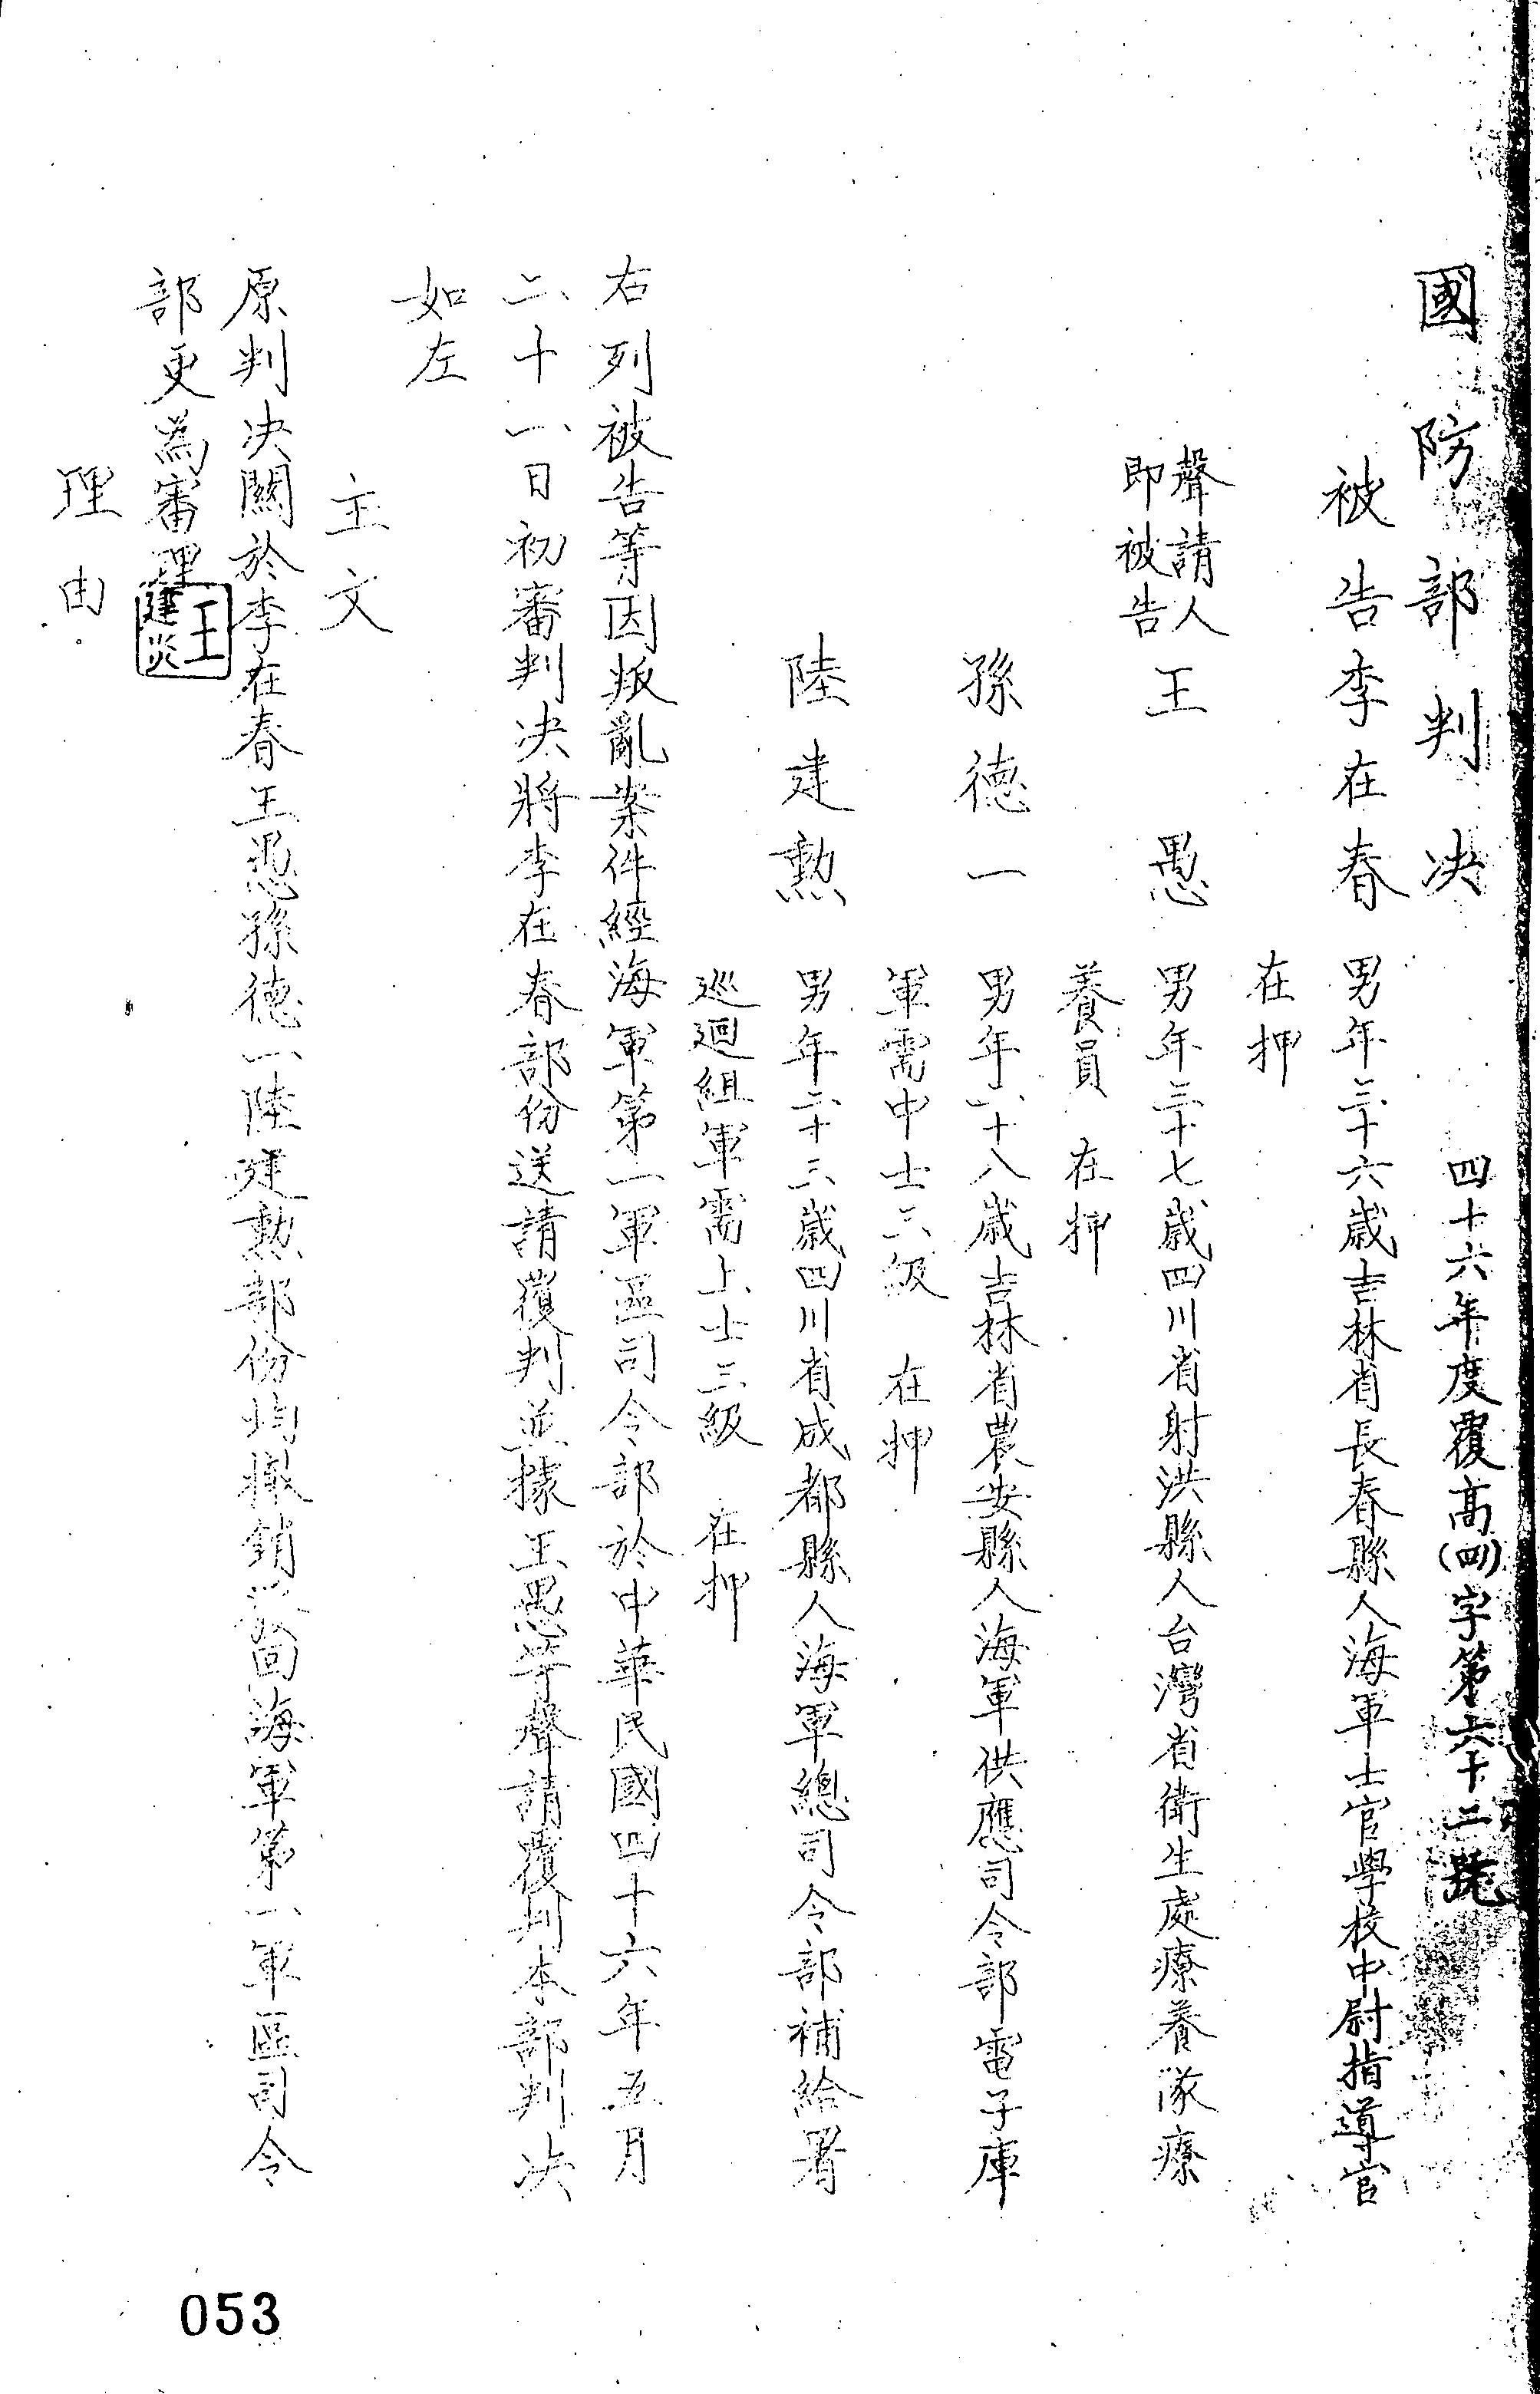 國防部判決 四十六年度覆高(四)字第六十二號
被告李在春 男年三十六歲吉林省長春縣人海軍士官學校中尉指導官
在押
聲請人
即被告 王 愚 男年三十七歲四川省射洪縣人台灣省衛生處療養隊療
養員 在押
孫德一 男年二十八歲吉林省農安縣人海軍供應司令部電子庫
軍需中士三級 在押
陸建勲 男年二十三歲四川省成都縣人海軍總司令部補給署
巡迴組軍需上士三級 在押
右列被告等因叛亂案件經海軍第一軍區司令部於中華民國四十六年五月
二十一日初審判決將李在春部份送請覆判並據王愚等聲請覆判本部判決
如左
主文
原判決關於李在春王愚孫德一陸建勲部份均撤銷發回海軍第一軍區司令
部更為審理
王建炎
理由
053